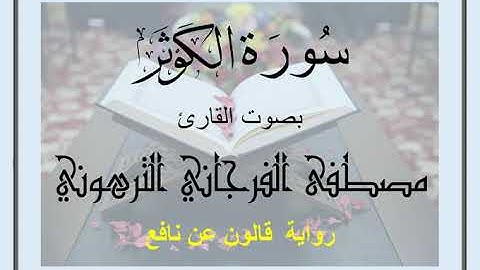 سُورَة الكَوْثَر
بصوت القارئ
مصطفى الفرجاني الترهوني
رواية قالون عن نافع